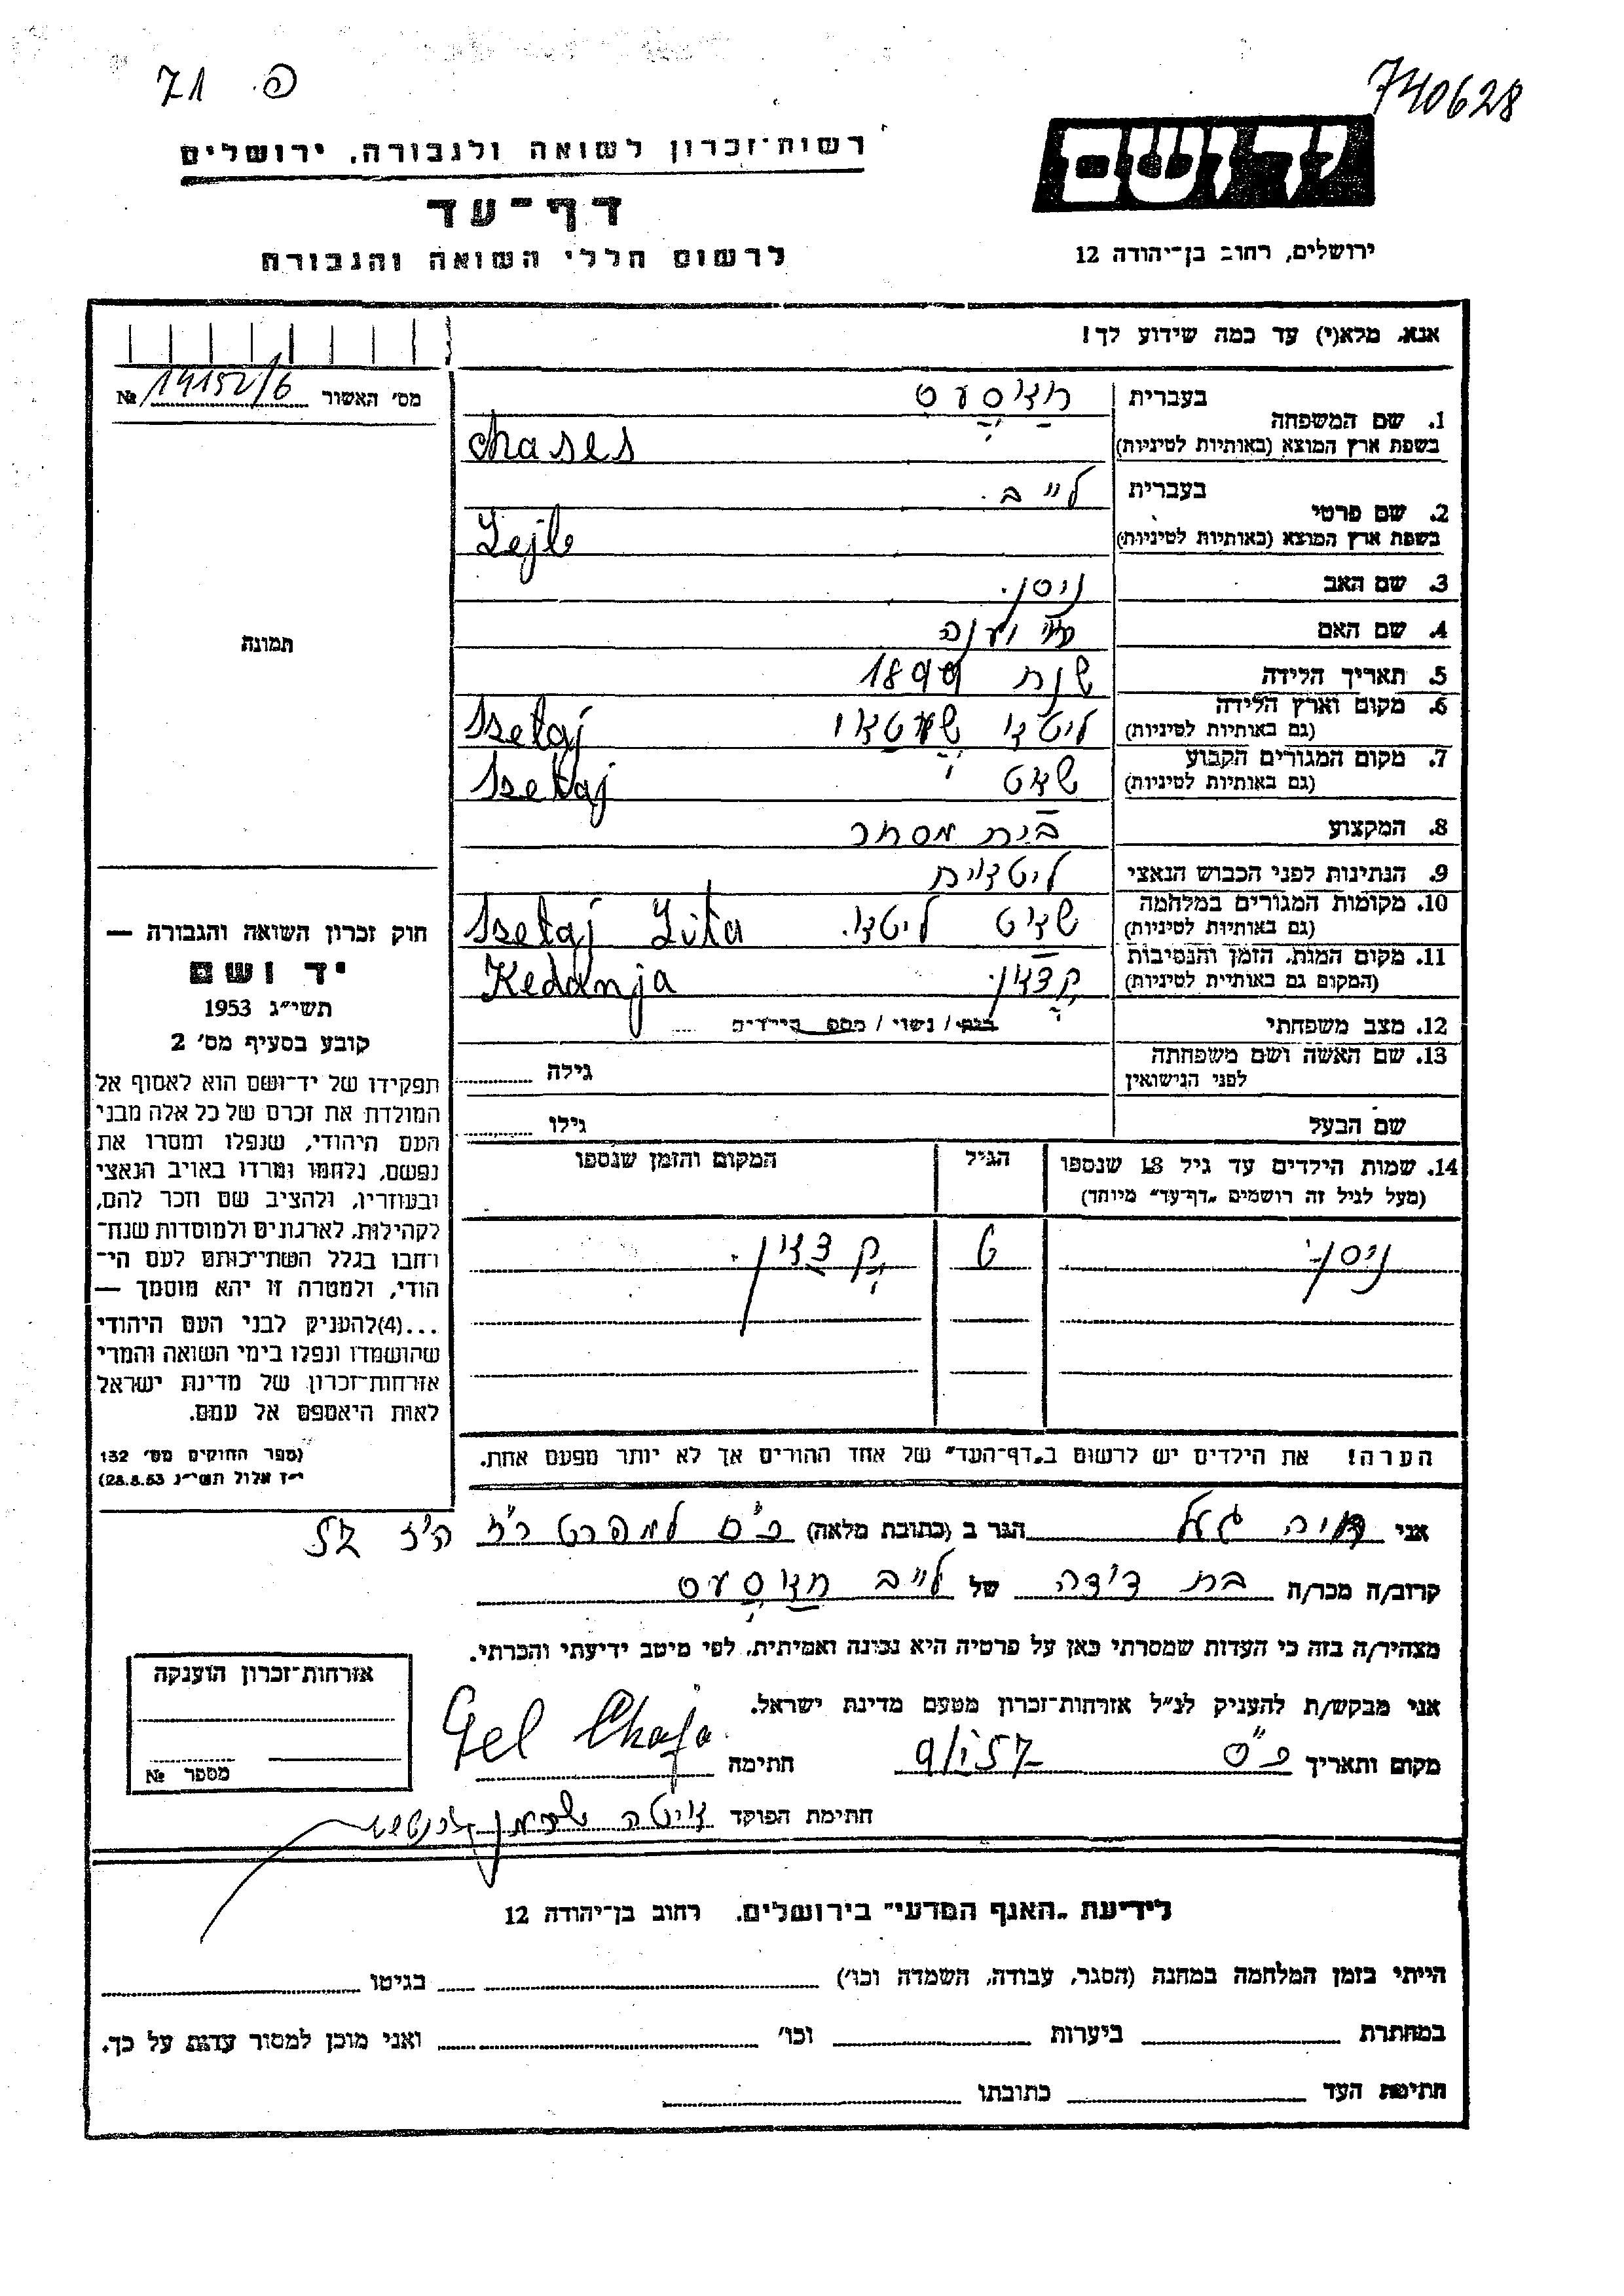 פ. 71
740628
רשות־זכרון לשואה ולגבורה, ירושלים
דף־עד
לרשום חללי השואה והגבורה
יד ושם
ירושלים, רחוב בן־יהודה 12
אנא, מלא(י) עד כמה שידוע לך!
מס׳ האשור 14152/6 №
1. שם המשפחה בעברית
בשפת ארץ המוצא (באותיות לטיניות) Chases
2. שם פרטי בעברית לייב.
בשפת ארץ המוצא (באותיות לטיניות) Lejb
3. שם האב ניסן.
4. שם האם
5. תאריך הלידה שנת 1899
6. מקום וארץ הלידה
(גם באותיות לטיניות) Szetaj
7. מקום המגורים הקבוע
(גם באותיות לטיניות) Szetaj
8. המקצוע בית מסחר
9. הנתינות לפני הכבוש הנאצי ליטאית
10. מקומות המגורים במלחמה
(גם באותיות לטיניות) ליטא. Szetaj Lita
11. מקום המות, הזמן והנסיבות
(המקום גם באותיות לטיניות) Kedanja
12. מצב משפחתי רווק / נשוי / מספר הילדים
13. שם האשה ושם משפחתה
לפני הנישואין
גילה
שם הבעל גילו
14. שמות הילדים עד גיל 18 שנספו
(מעל לגיל זה רושמים „דף־עד״ מיוחד)
הגיל
המקום והזמן שנספו
ניסן
הערה! את הילדים יש לרשום ב„דף־העד״ של אחד ההורים אך לא יותר מפעם אחת.
תמונה
חוק זכרון השואה והגבורה —
יד ושם
תשי״ג 1953
קובע בסעיף מס׳ 2
תפקידו של יד־ושם הוא לאסוף אל
המולדת את זכרם של כל אלה מבני
העם היהודי, שנפלו ומסרו את
נפשם, נלחמו ומרדו באויב הנאצי
ובעוזריו, ולהציב שם וזכר להם,
לקהילות, לארגונים ולמוסדות שנח־
רחבו בגלל השתייכותם לעם הי־
הודי, ולמטרה זו יהא מוסמך —
...(4)להעניק לבני העם היהודי
שהושמדו ונפלו בימי השואה והמרי
אזרחות־זכרון של מדינת ישראל
לאות היאספם אל עמם.
(ספר החוקים מס׳ 132
י״ז אלול תשי״ג 28.8.53)
אני חיה געל הגר ב (כתובת מלאה)
קרוב/ה מכר/ה בת דודה של לייב
מצהיר/ה בזה כי העדות שמסרתי כאן על פרטיה היא נכונה ואמיתית, לפי מיטב ידיעתי והכרתי.
אני מבקש/ת להעניק לנ״ל אזרחות־זכרון מטעם מדינת ישראל.
מקום ותאריך 9/I/57 חתימה Gel Chaja
חתימת הפוקד
אזרחות־זכרון הוענקה
מספר №
לידיעת „האגף המדעי״ בירושלים, רחוב בן־יהודה 12
הייתי בזמן המלחמה במחנה (הסגר, עבודה, השמדה וכו׳) בגיטו
במחתרת ביערות וכו׳ ואני מוכן למסור עדות על כך.
חתימת העד כתובתו